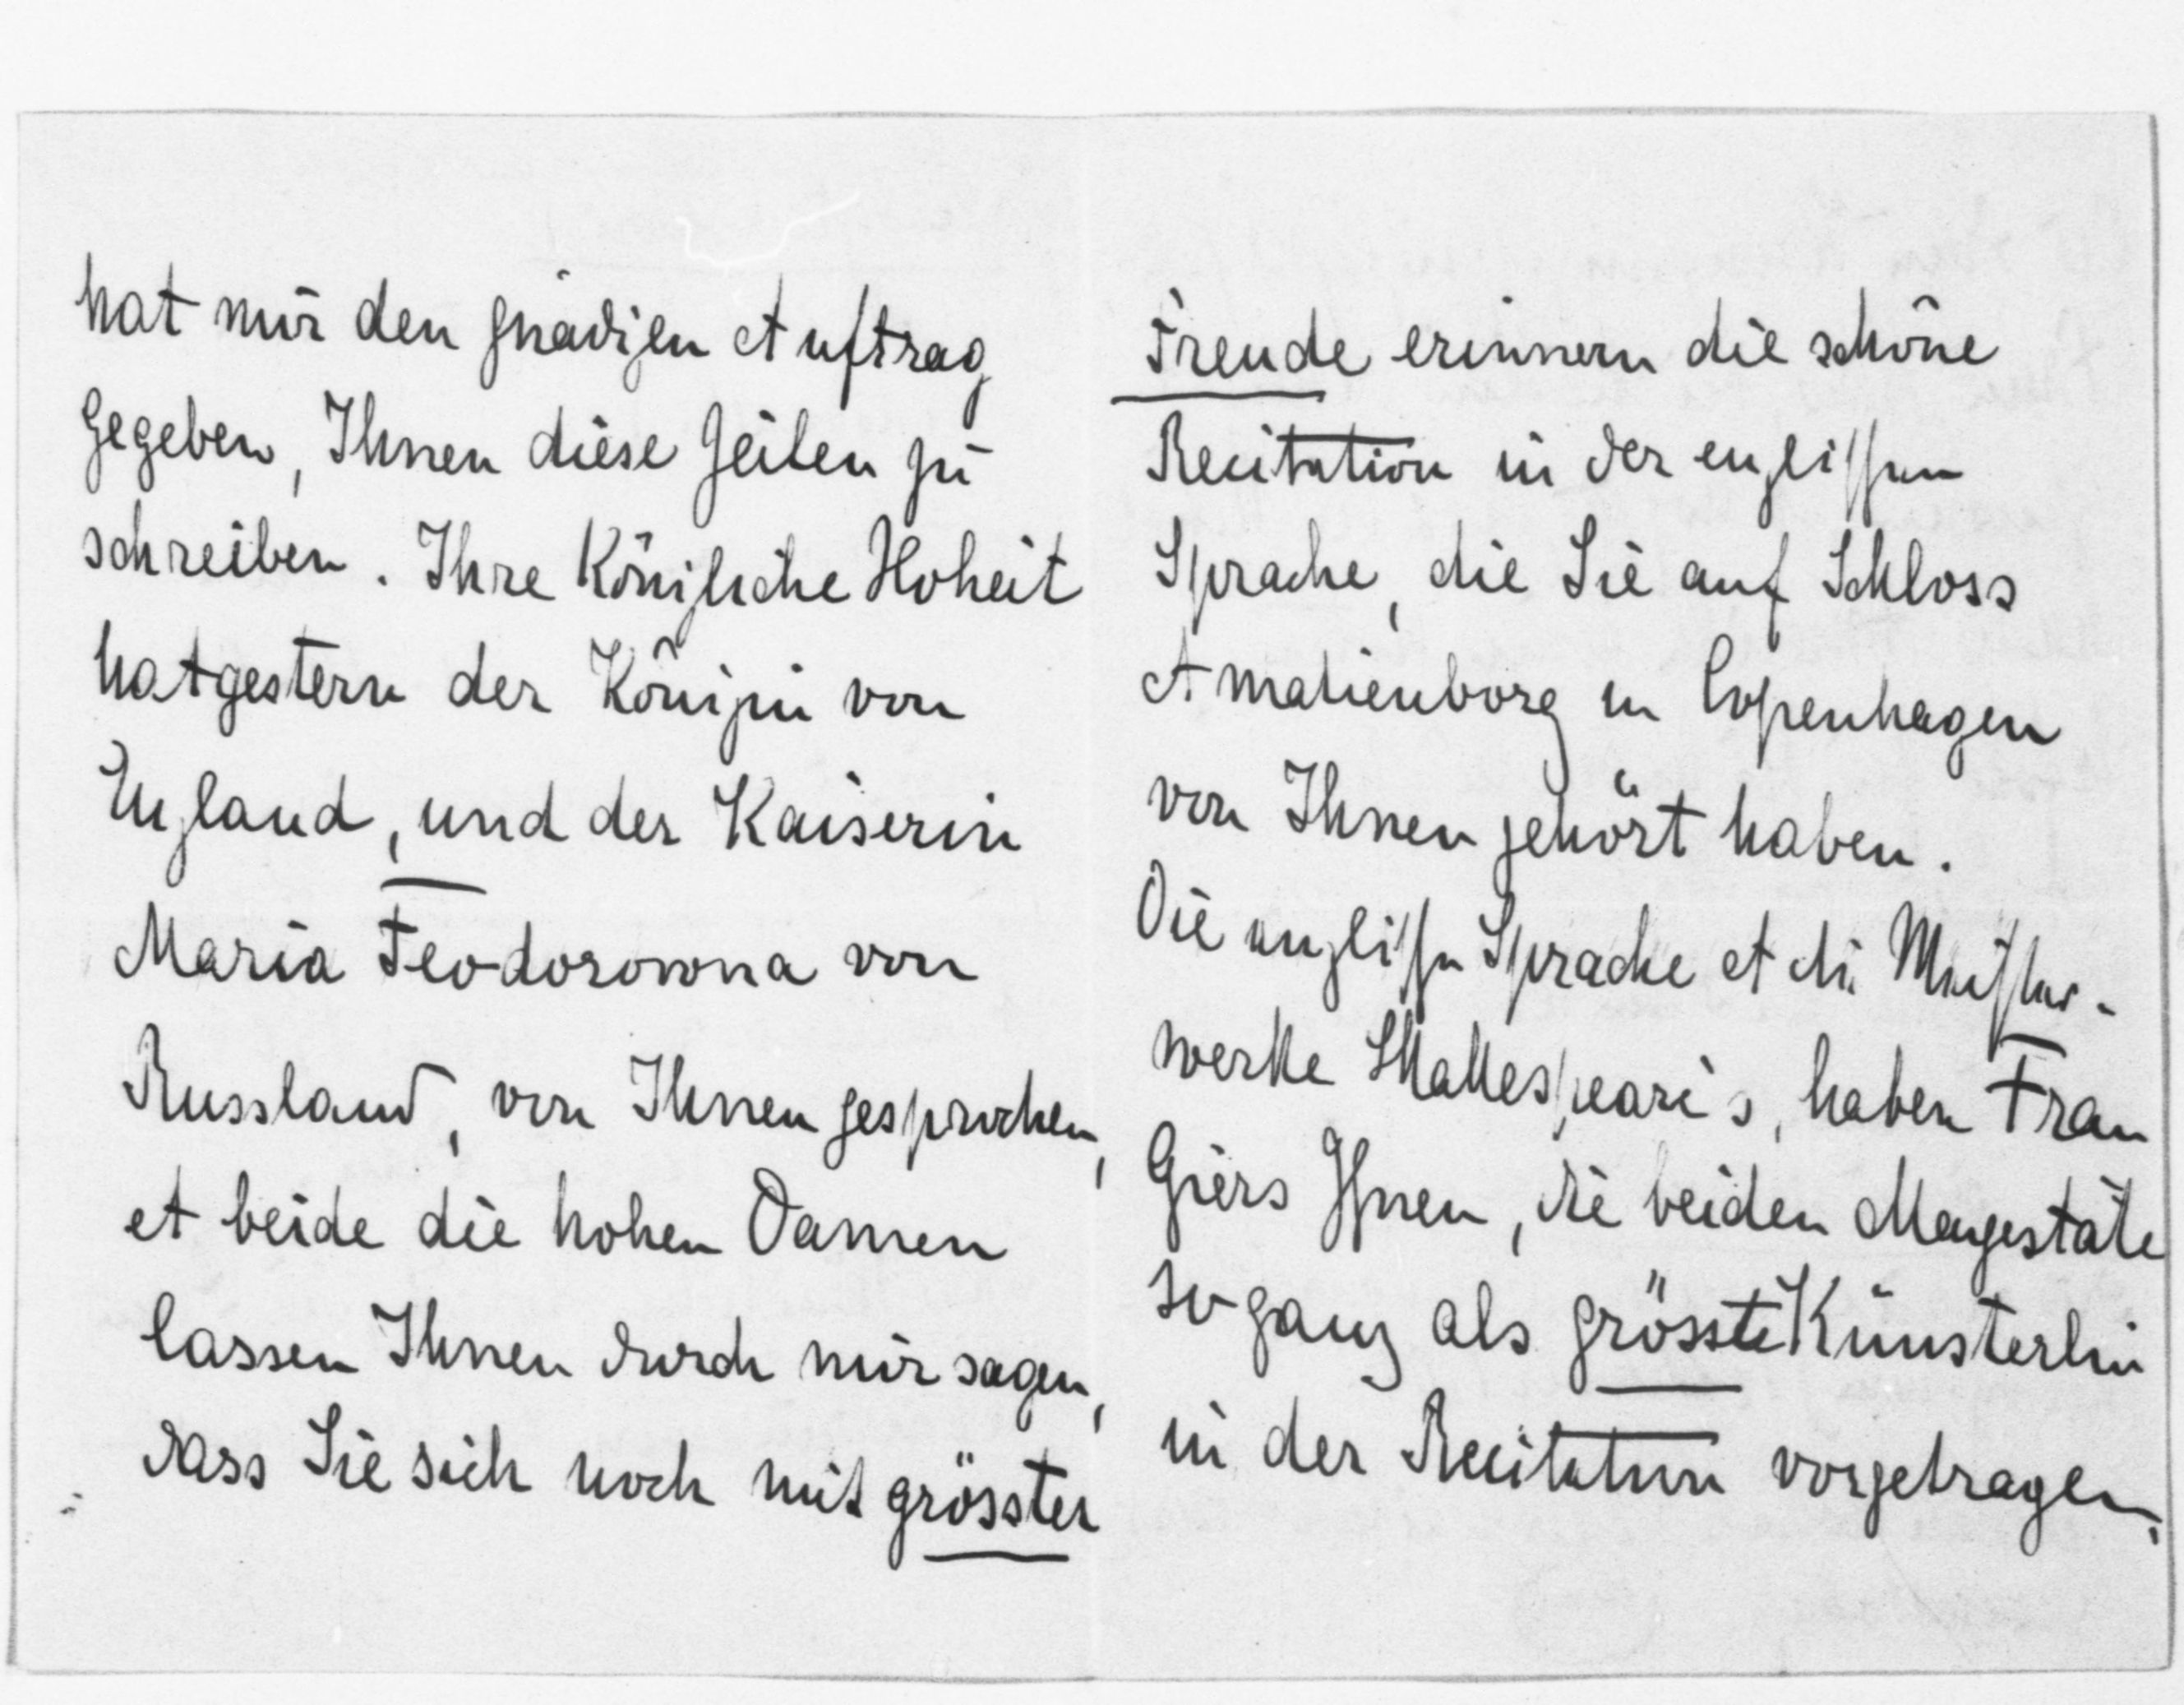 hat mir den gnädigen Auftrag
gegeben, Ihnen diese Zeilen zu
schreiben. Ihre Königliche Hoheit
hat gestern der Königin von
England, und der Kaiserin
Maria Feodorowna von
Russland, von Ihnen gesprochen,
et beide die hohen Damen
lassen Ihnen durch mir sagen,
dass Sie sich noch mit grösster
Freude erinnern die schöne
Recitation in der englischen
Sprache, die Sie auf Schloss
Amalienborg in Copenhagen
von Ihnen gehört haben.
Die englische Sprache et die Meister-
werke Shakespeare's, haben Frau
Giers Ihnen, die beiden Magestäte
so ganz als grösste Künsterlin
in der Recitation vorgetragen,